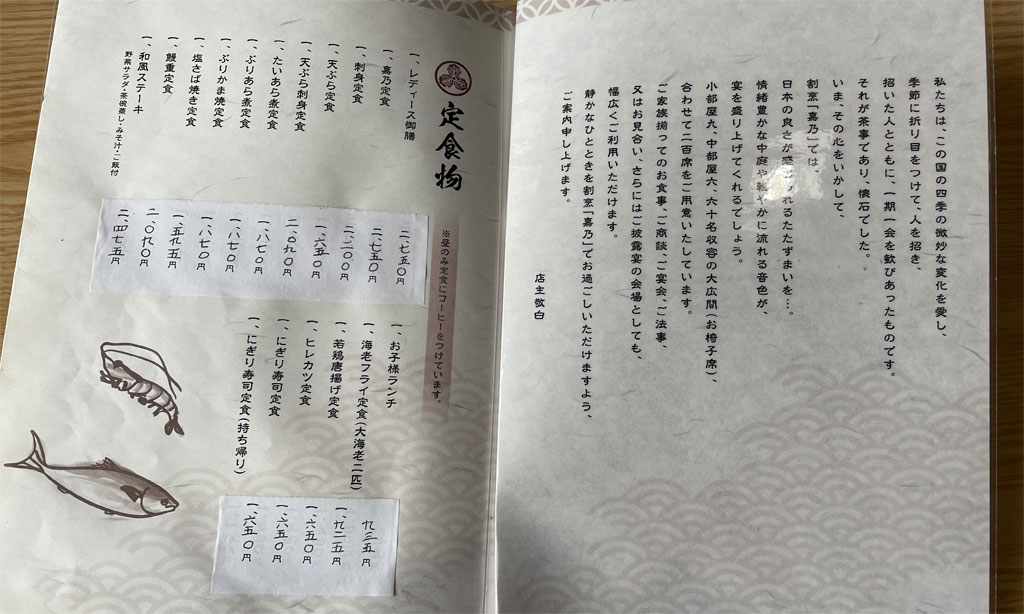 私たちは、この国の四季の微妙な変化を愛し、
季節に折り目をつけて、人を招き、
招いた人とともに、一期一会を歓びあったものです。
それが茶事であり、懐石でした。
いま、その心をいかして、
割烹「嘉乃」では、
日本の良さが感じられるたたずまいを…。
情緒豊かな中庭や軽やかに流れる音色が、
宴を盛り上げてくれるでしょう。
小部屋九、中部屋六、六十名収容の大広間(お椅子席)、
合わせて二百席をご用意いたしています。
ご家族揃ってのお食事、ご商談、ご宴会、ご法事、
又はお見合い、さらにはご披露宴の会場としても、
幅広くご利用いただけます。
静かなひとときを割烹「嘉乃」でお過ごしいただけますよう、
ご案内申し上げます。
店主敬白
定食物
※昼のみ定食にコーヒーをつけています。
一、レディース御膳 二、七五〇円
一、嘉乃定食 二、七五〇円
一、刺身定食 二、二〇〇円
一、天ぷら定食 一、六五〇円
一、天ぷら刺身定食 二、〇九〇円
一、たいあら煮定食 一、八七〇円
一、ぶりあら煮定食 一、八七〇円
一、ぶりかま焼定食 一、八七〇円
一、塩さば焼き定食 一、五九五円
一、鰻重定食 二、〇九〇円
一、和風ステーキ 二、四七五円
野菜サラダ・茶碗蒸し・みそ汁・ご飯付
一、お子様ランチ 九三五円
一、海老フライ定食(大海老二匹) 一、九二五円
一、若鶏唐揚げ定食 一、六五〇円
一、ヒレカツ定食 一、六五〇円
一、にぎり寿司定食 一、六五〇円
一、にぎり寿司定食(持ち帰り)